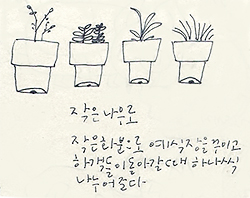 작은 나무로
작은화분으로 예식장을 꾸미고
하객들이돌아갈때 하나씩
나누어준다.